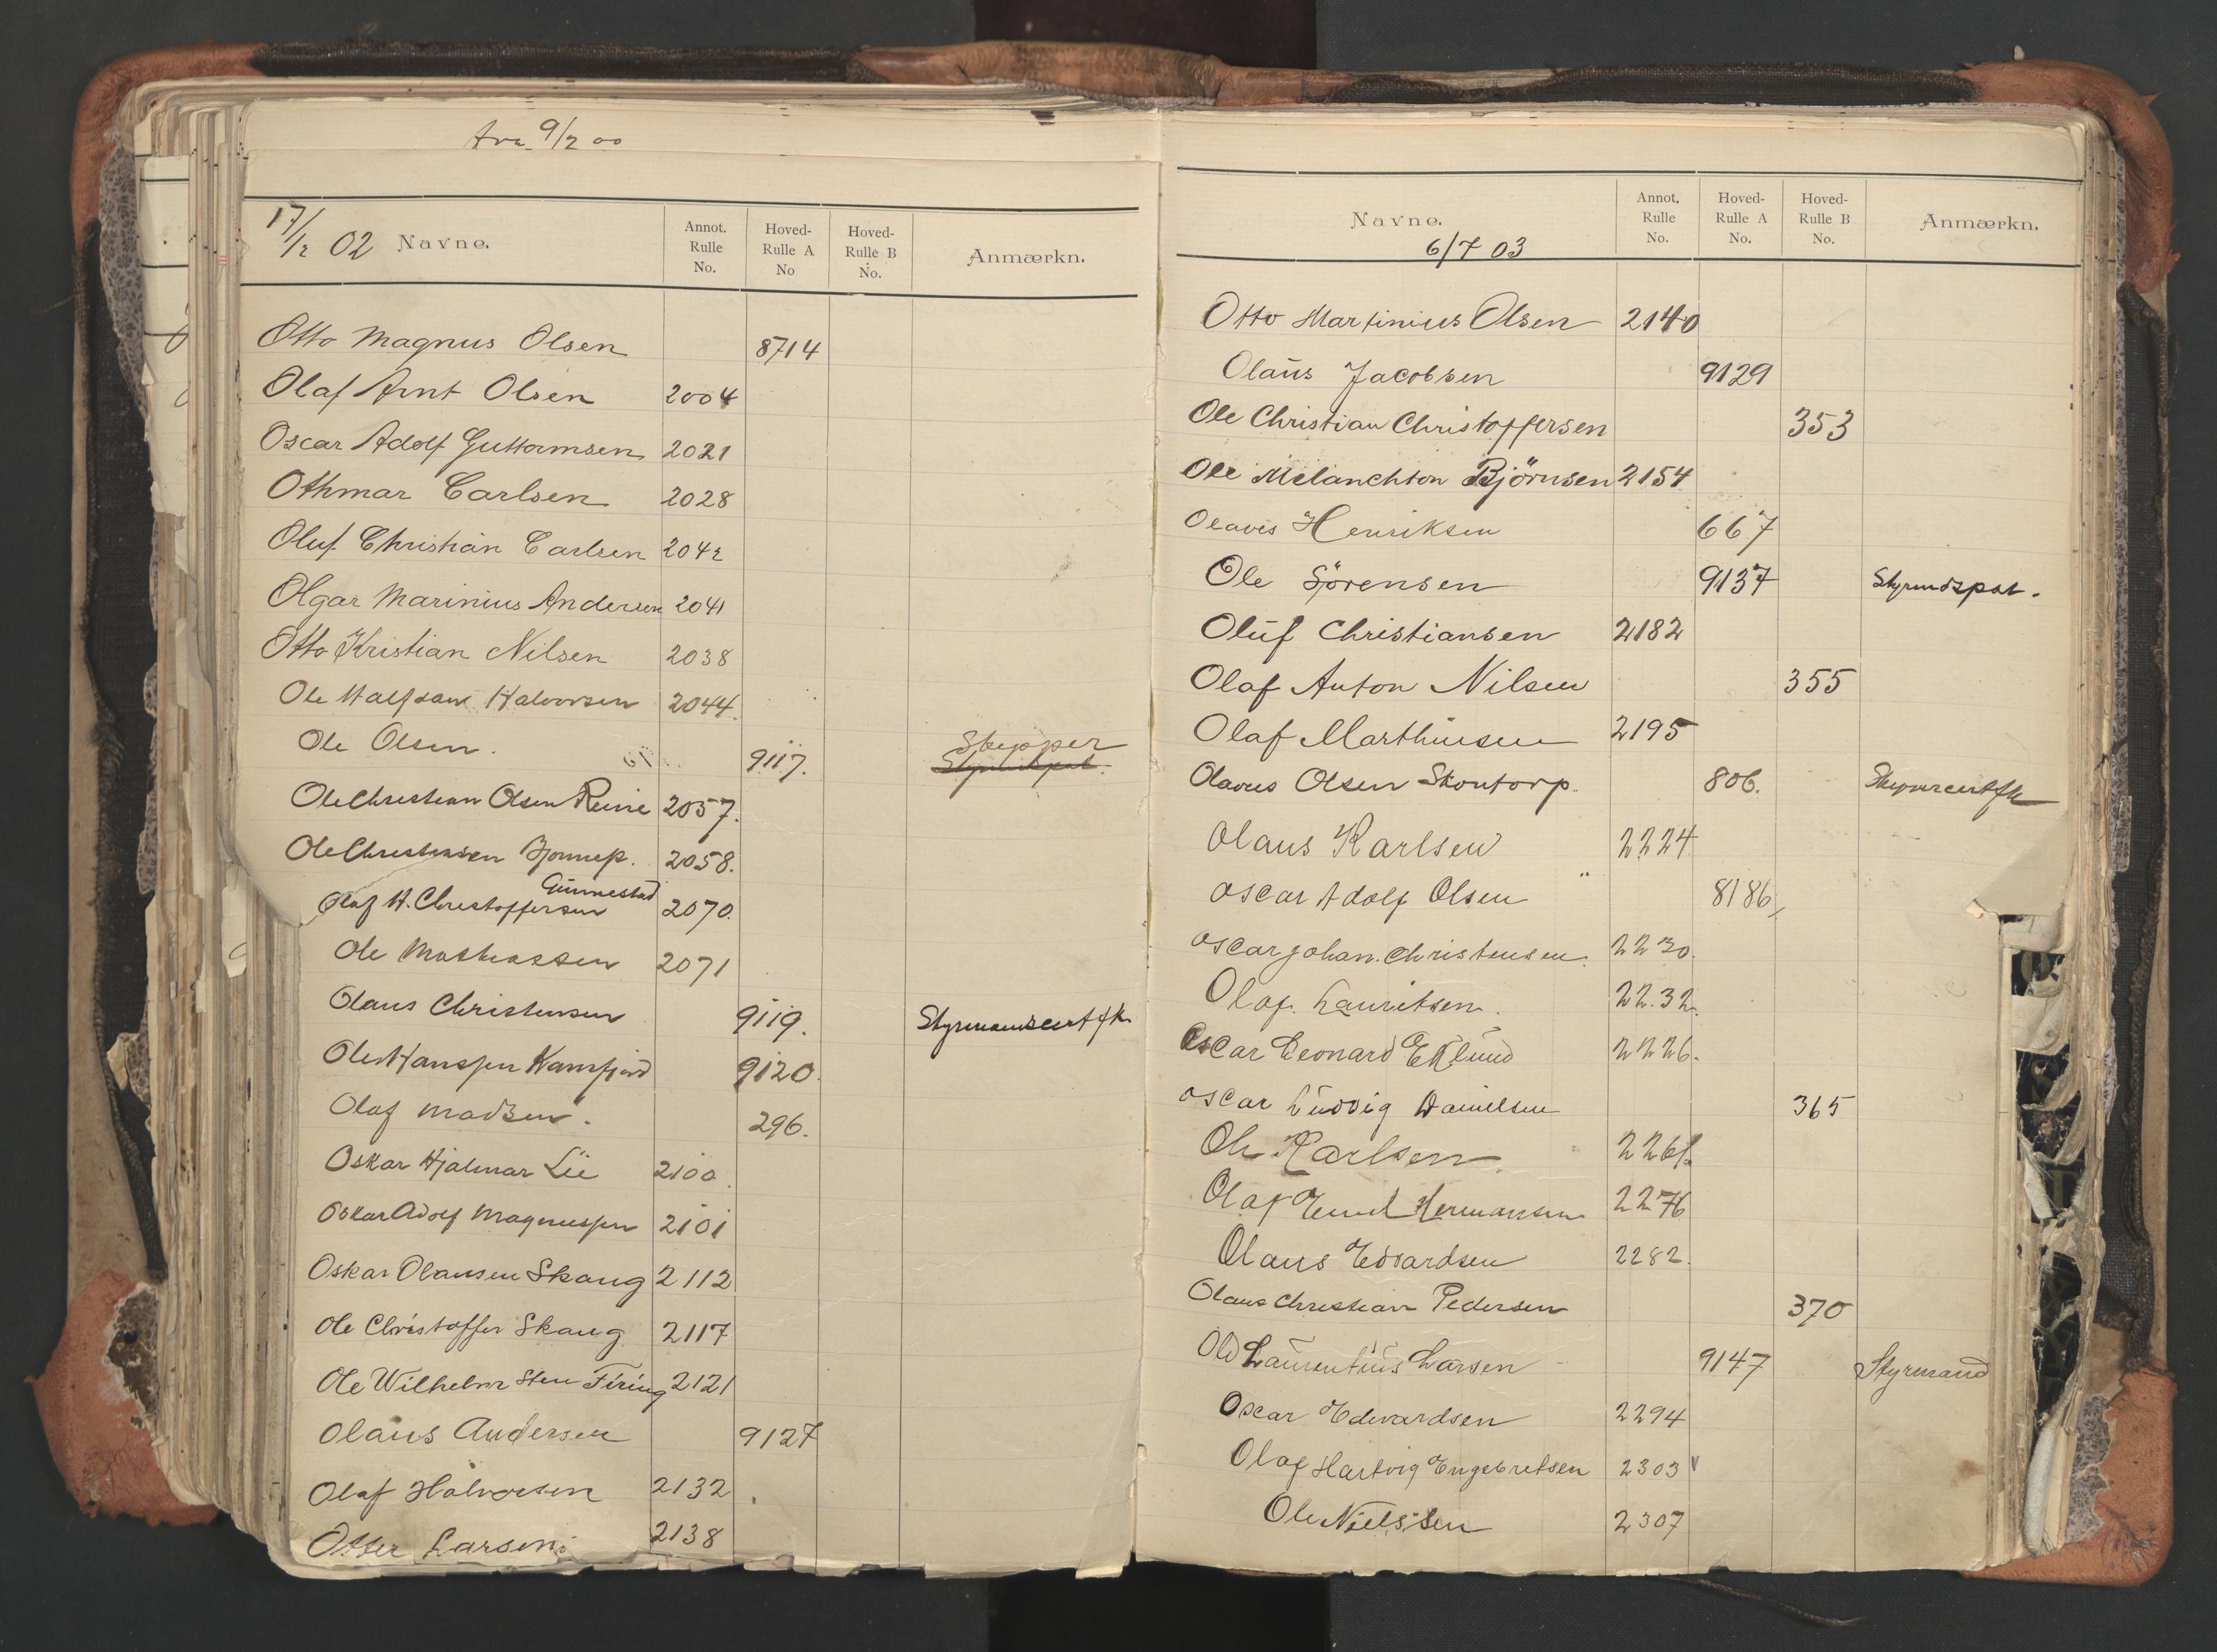 fra 9/2 00
17/12 02 Navne. Annot. Rulle No. Hoved-Rulle A No Hoved-Rulle B No. Anmærkn.
Otto Magnus Olsen 8714
Olaf Arnt Olsen 2004
Oscar Adolf Guttormsen 2021
Othmar Carlsen 2028
Oluf Christian Carlsen 2042
Olgar Marinius Andersen 2041
Otto Kristian Nilsen 2038
Ole Halfdan Halvorsen 2044.
Ole Olsen. 9117. Skipper
Ole Christian Olsen 2057.
Ole Christensen 2058.
Gunnestad
Olaf H. Christoffersen 2070.
Ole Mathiassen 2071
Olaus Christensen 9119. Styrmandscert fk.
Ole Hanssen Kamfjord 9120.
Olaf Madsen. 296.
Oskar Hjalmar Lie 2100.
Oskar Adolf Magnussen 2101
Oskar Olausen Skaug 2112
Ole Christoffer Skaug 2117
Ole Wilhelm Sten Firing 2121
Olaus Andersen 9127
Olaf Halvorsen 2132
Otter Larsen 2138
Navne. Annot. Rulle No. Hoved-Rulle A No. Hoved-Rulle B No. Anmærkn.
6/7 03
Otto Martinius Olsen 2140
Olaus Jacobsen 9129
Ole Christian Christoffersen 353
Ole Melanchton Björnsen 2154
Olaves Henriksen 667
Ole Sörensen 9137 Styrmdspat.
Oluf Christiansen 2182
Olaf Anton Nilsen 355
Olaf Marthinsen 2195
Olavus Olsen Skontorp. 806.
Olaus Karlsen 2224
Oscar Adolf Olsen 8186
Oscar Johan. Christensen. 2230.
Olaf. Lauritsen. 2232.
Oscar Leonard Eklund 2226.
Oscar Ludvig Danielsen 365
Ole Karlsen. 2261.
Olaf Emil Hermansen 2276
Olaus Edvardsen 2282.
Olaus Christian Pedersen 370
Ole Laurentius Larsen 9147 Styrmand
Oscar Edwardsen 2294
Olaf Hartvig Engebretsen 2303 v
Ole Nielssen 2307